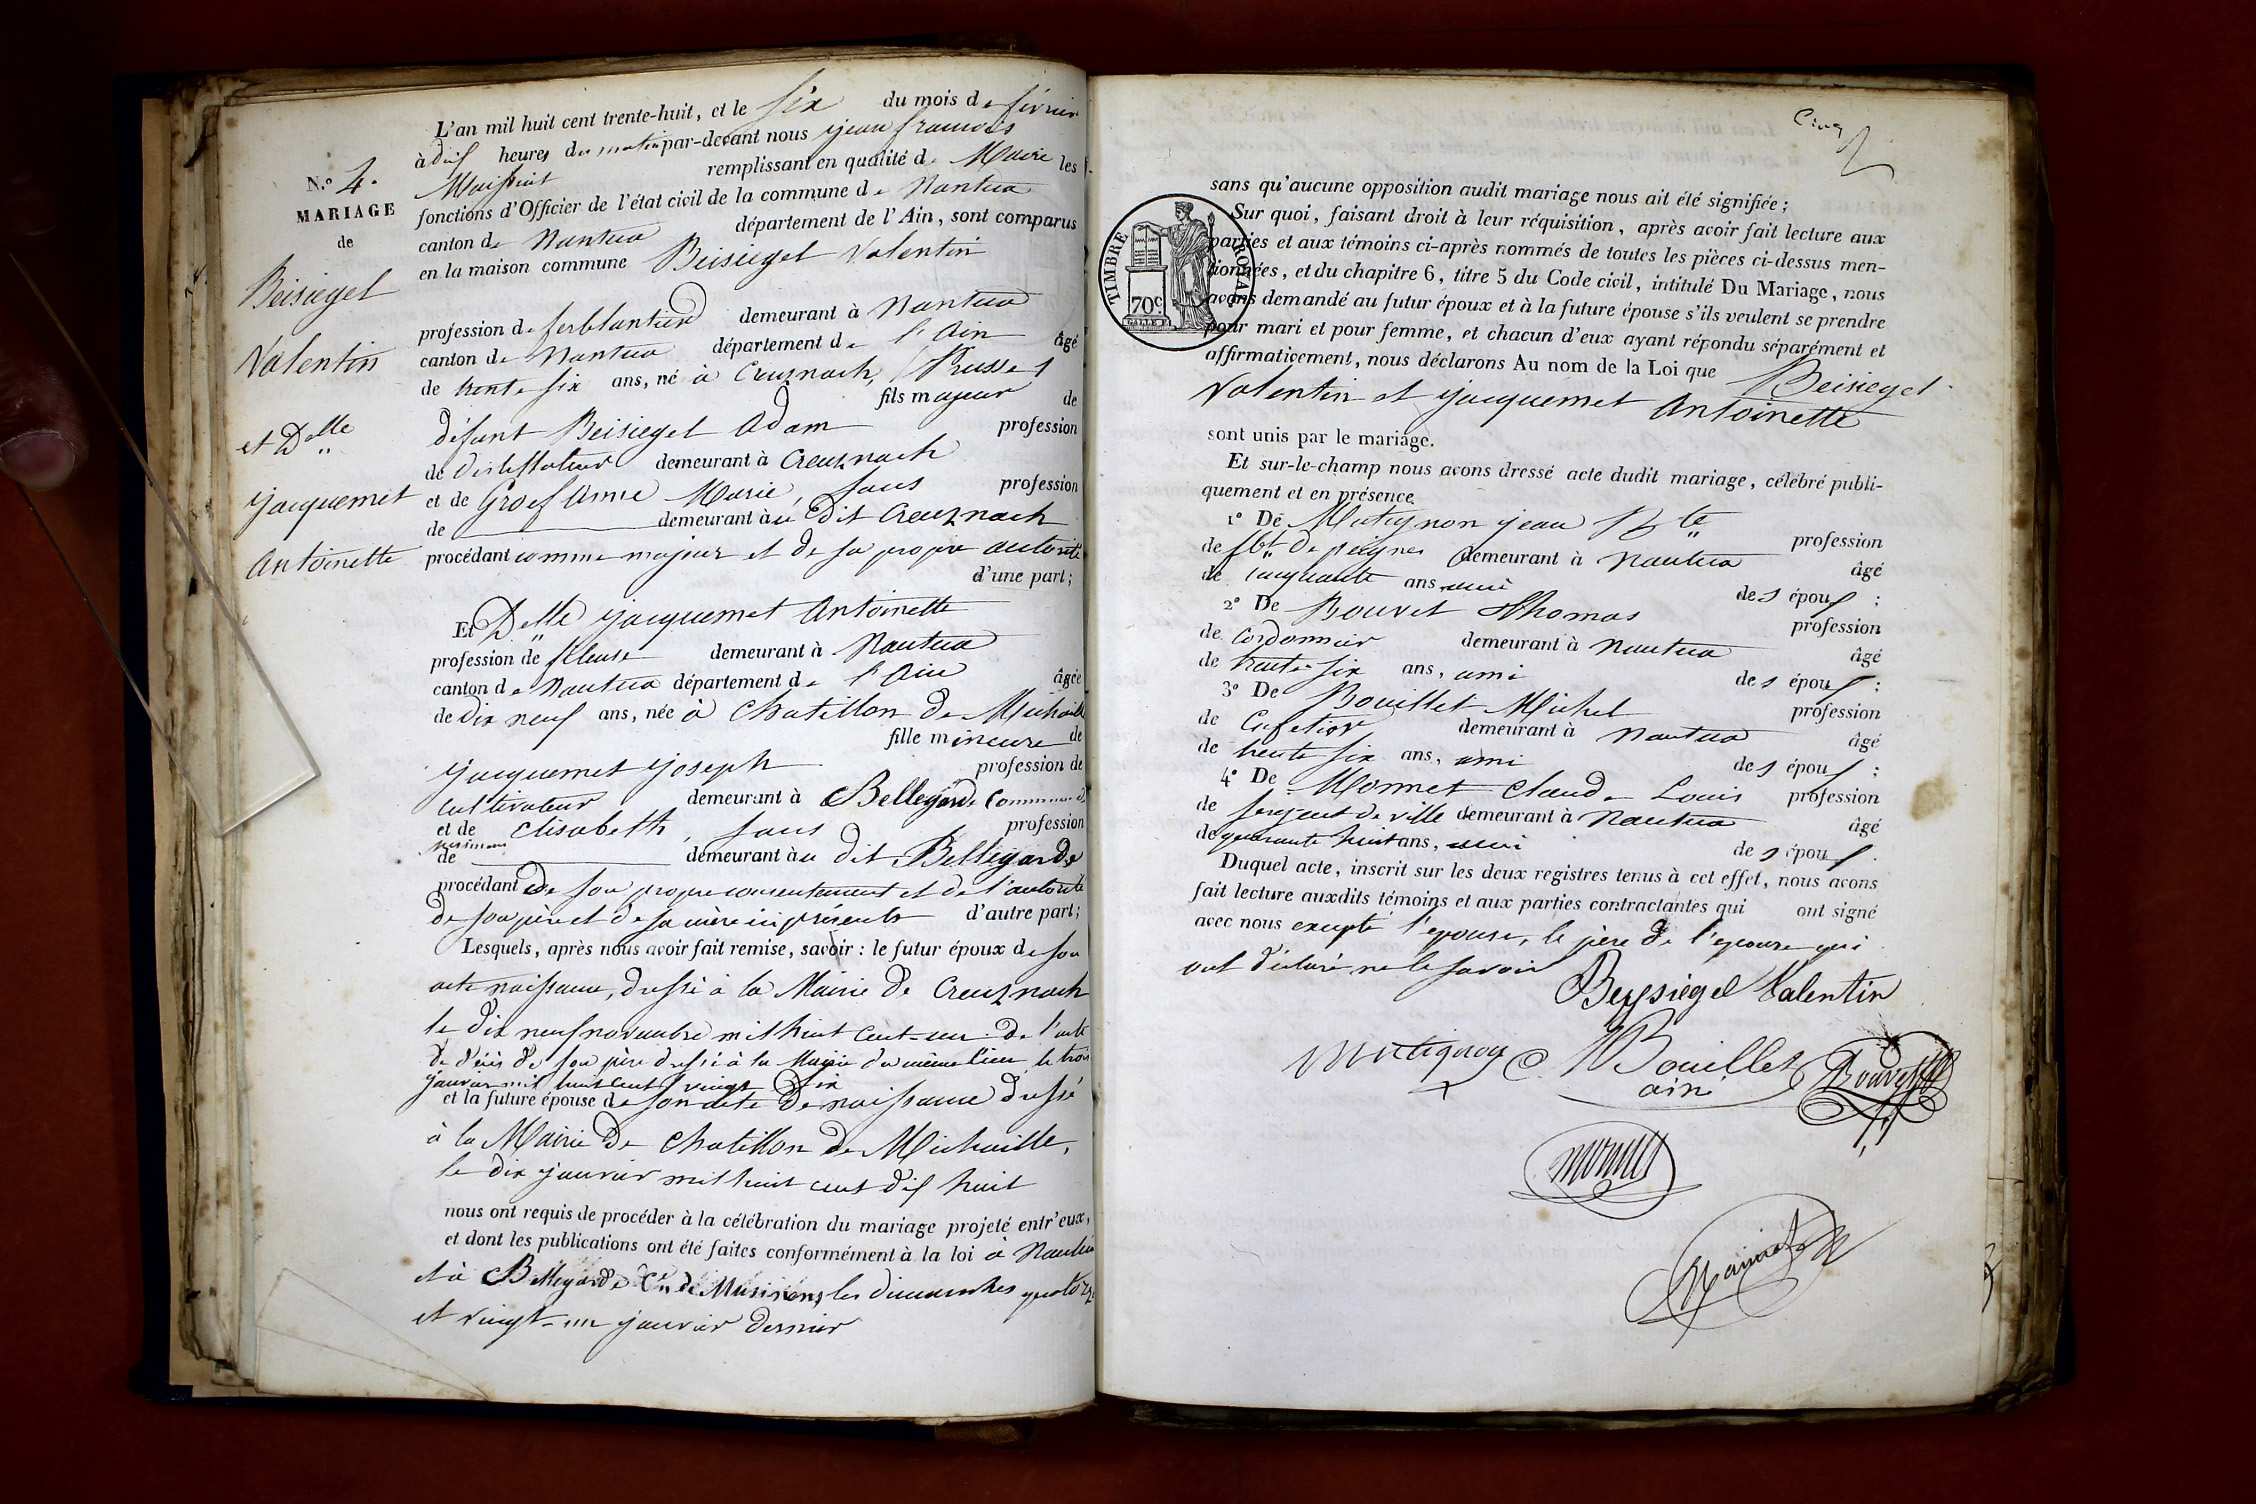 L'an mil huit cent trente-huit, et le six du mois de février
à dix heures du matin par-devant nous jean francois
Maissiat remplissant en qualité de Maire les
fonctions d'Officier de l'état civil de la commune de Nantua
canton de Nantua département de l'Ain, sont comparus
en la maison commune Beisiegel Valentin
N.o 4.
MARIAGE
de
Beisiegel
Valentin
et Dlle
jacquemet
Antoinette
profession de ferblantier demeurant à Nantua
canton de Nantua département de l'Ain âgé
de trente six ans, né à Creuznach, (Prusse)
fils majeur de
défunt Beisiegel Adam profession
de distillateur demeurant à Creuznach
et de Groef Anne Marie, sans profession
de demeurant au dit Creuznach
procédant comme majeur et de sa propre autorité
d'une part;
Et Delle jacquemet Antoinette
profession de fileuse demeurant à Nantua
canton de Nantua département de l'Ain âgée
de dix neuf ans, née à Chatillon de Michaille
fille mineure de
jacquemet joseph profession de
cultivateur demeurant à Bellegarde Commune de
et de Elisabeth, sans profession
de demeurant au dit Bellegarde
procédant de son propre consentement et de l'autorité
de son père et de sa mère ici présents d'autre part;
Lesquels, après nous avoir fait remise, savoir : le futur époux de son
acte naissance, dressé à la Mairie de Creuznach
le dix neuf novembre mil huit cent-un. De l'acte
de décès de son père dressé à la Mairie du même lieu le trois
janvier mil huit cent vingt six
et la future épouse de son acte de naissance dressé
à la Mairie de Chatillon de Michaille,
le dix janvier mil huit cent dix huit
nous ont requis de procéder à la célébration du mariage projeté entr'eux,
et dont les publications ont été faites conformément à la loi à Nantua
et à Bellegarde Cne de Musinens, les dimanches quatorze
et vingt-un janvier dernier
Cinq
TIMBRE ROYAL
70c.
sans qu'aucune opposition audit mariage nous ait été signifiée ;
Sur quoi, faisant droit à leur réquisition, après avoir fait lecture aux
parties et aux témoins ci-après nommés de toutes les pièces ci-dessus men-
tionnées, et du chapitre 6, titre 5 du Code civil, intitulé Du Mariage, nous
avons demandé au futur époux et à la future épouse s'ils veulent se prendre
pour mari et pour femme, et chacun d'eux ayant répondu séparément et
affirmativement, nous déclarons Au nom de la Loi que Beisiegel
Valentin et jacquemet Antoinette
sont unis par le mariage.
Et sur-le-champ nous avons dressé acte dudit mariage, célébré publi-
quement et en présence
1o De Matignon jean Bte profession
de fbt de peignes demeurant à Nantua âgé
de cinquante ans, ami des époux ;
2o De Bouvet Thomas profession
de Cordonnier demeurant à Nantua âgé
de trente-six ans, ami des époux ;
3o De Bouillet Michel profession
de Cafetier demeurant à Nantua âgé
de trente six ans, ami des époux ;
4o De Monnet Claude Louis profession
de sergent de ville demeurant à Nantua âgé
de quarante huit ans, ami des époux.
Duquel acte, inscrit sur les deux registres tenus à cet effet, nous avons
fait lecture auxdits témoins et aux parties contractantes qui ont signé
avec nous excepté l'épouse, le père de l'épouse qui
ont déclaré ne le savoir
Beysiegel Valentin
Matignon
Bouillet
ainé
Bouvet
monnet